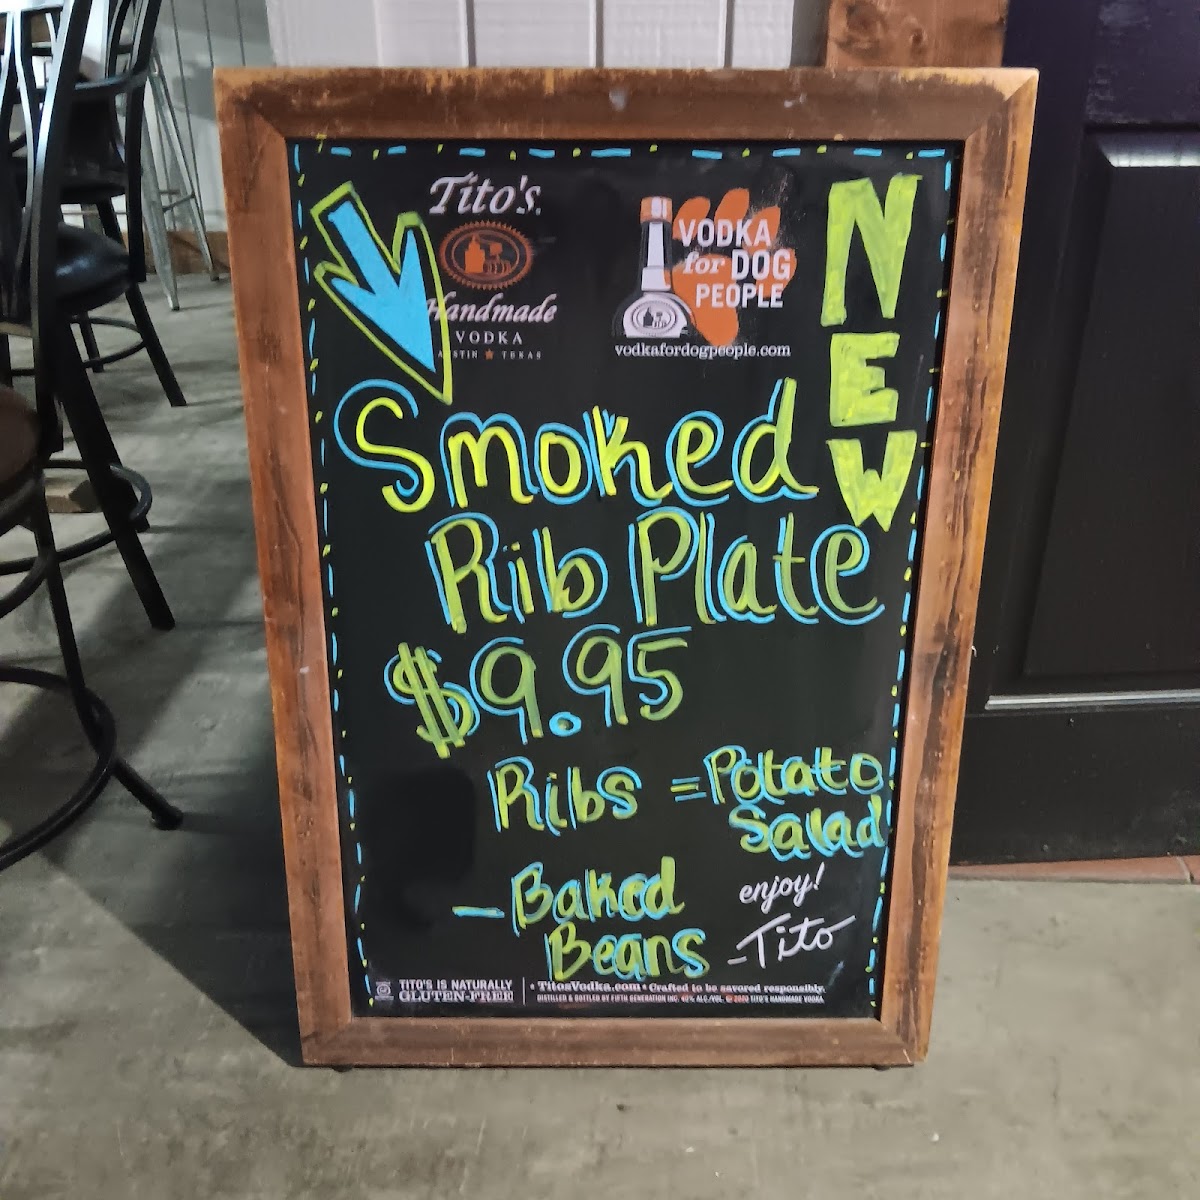 Tito's
Handmade
VODKA
AUSTIN ★ TEXAS
VODKA
for DOG
PEOPLE
vodkafordogpeople.com
NEW
Smoked
Rib Plate
$9.95
Ribs = Potato
Salad
- Baked
Beans
enjoy!
-Tito
TITO'S IS NATURALLY
GLUTEN-FREE
• TitosVodka.com • Crafted to be savored responsibly.
DISTILLED & BOTTLED BY FIFTH GENERATION INC. 40% ALC./VOL. © 2020 TITO'S HANDMADE VODKA.